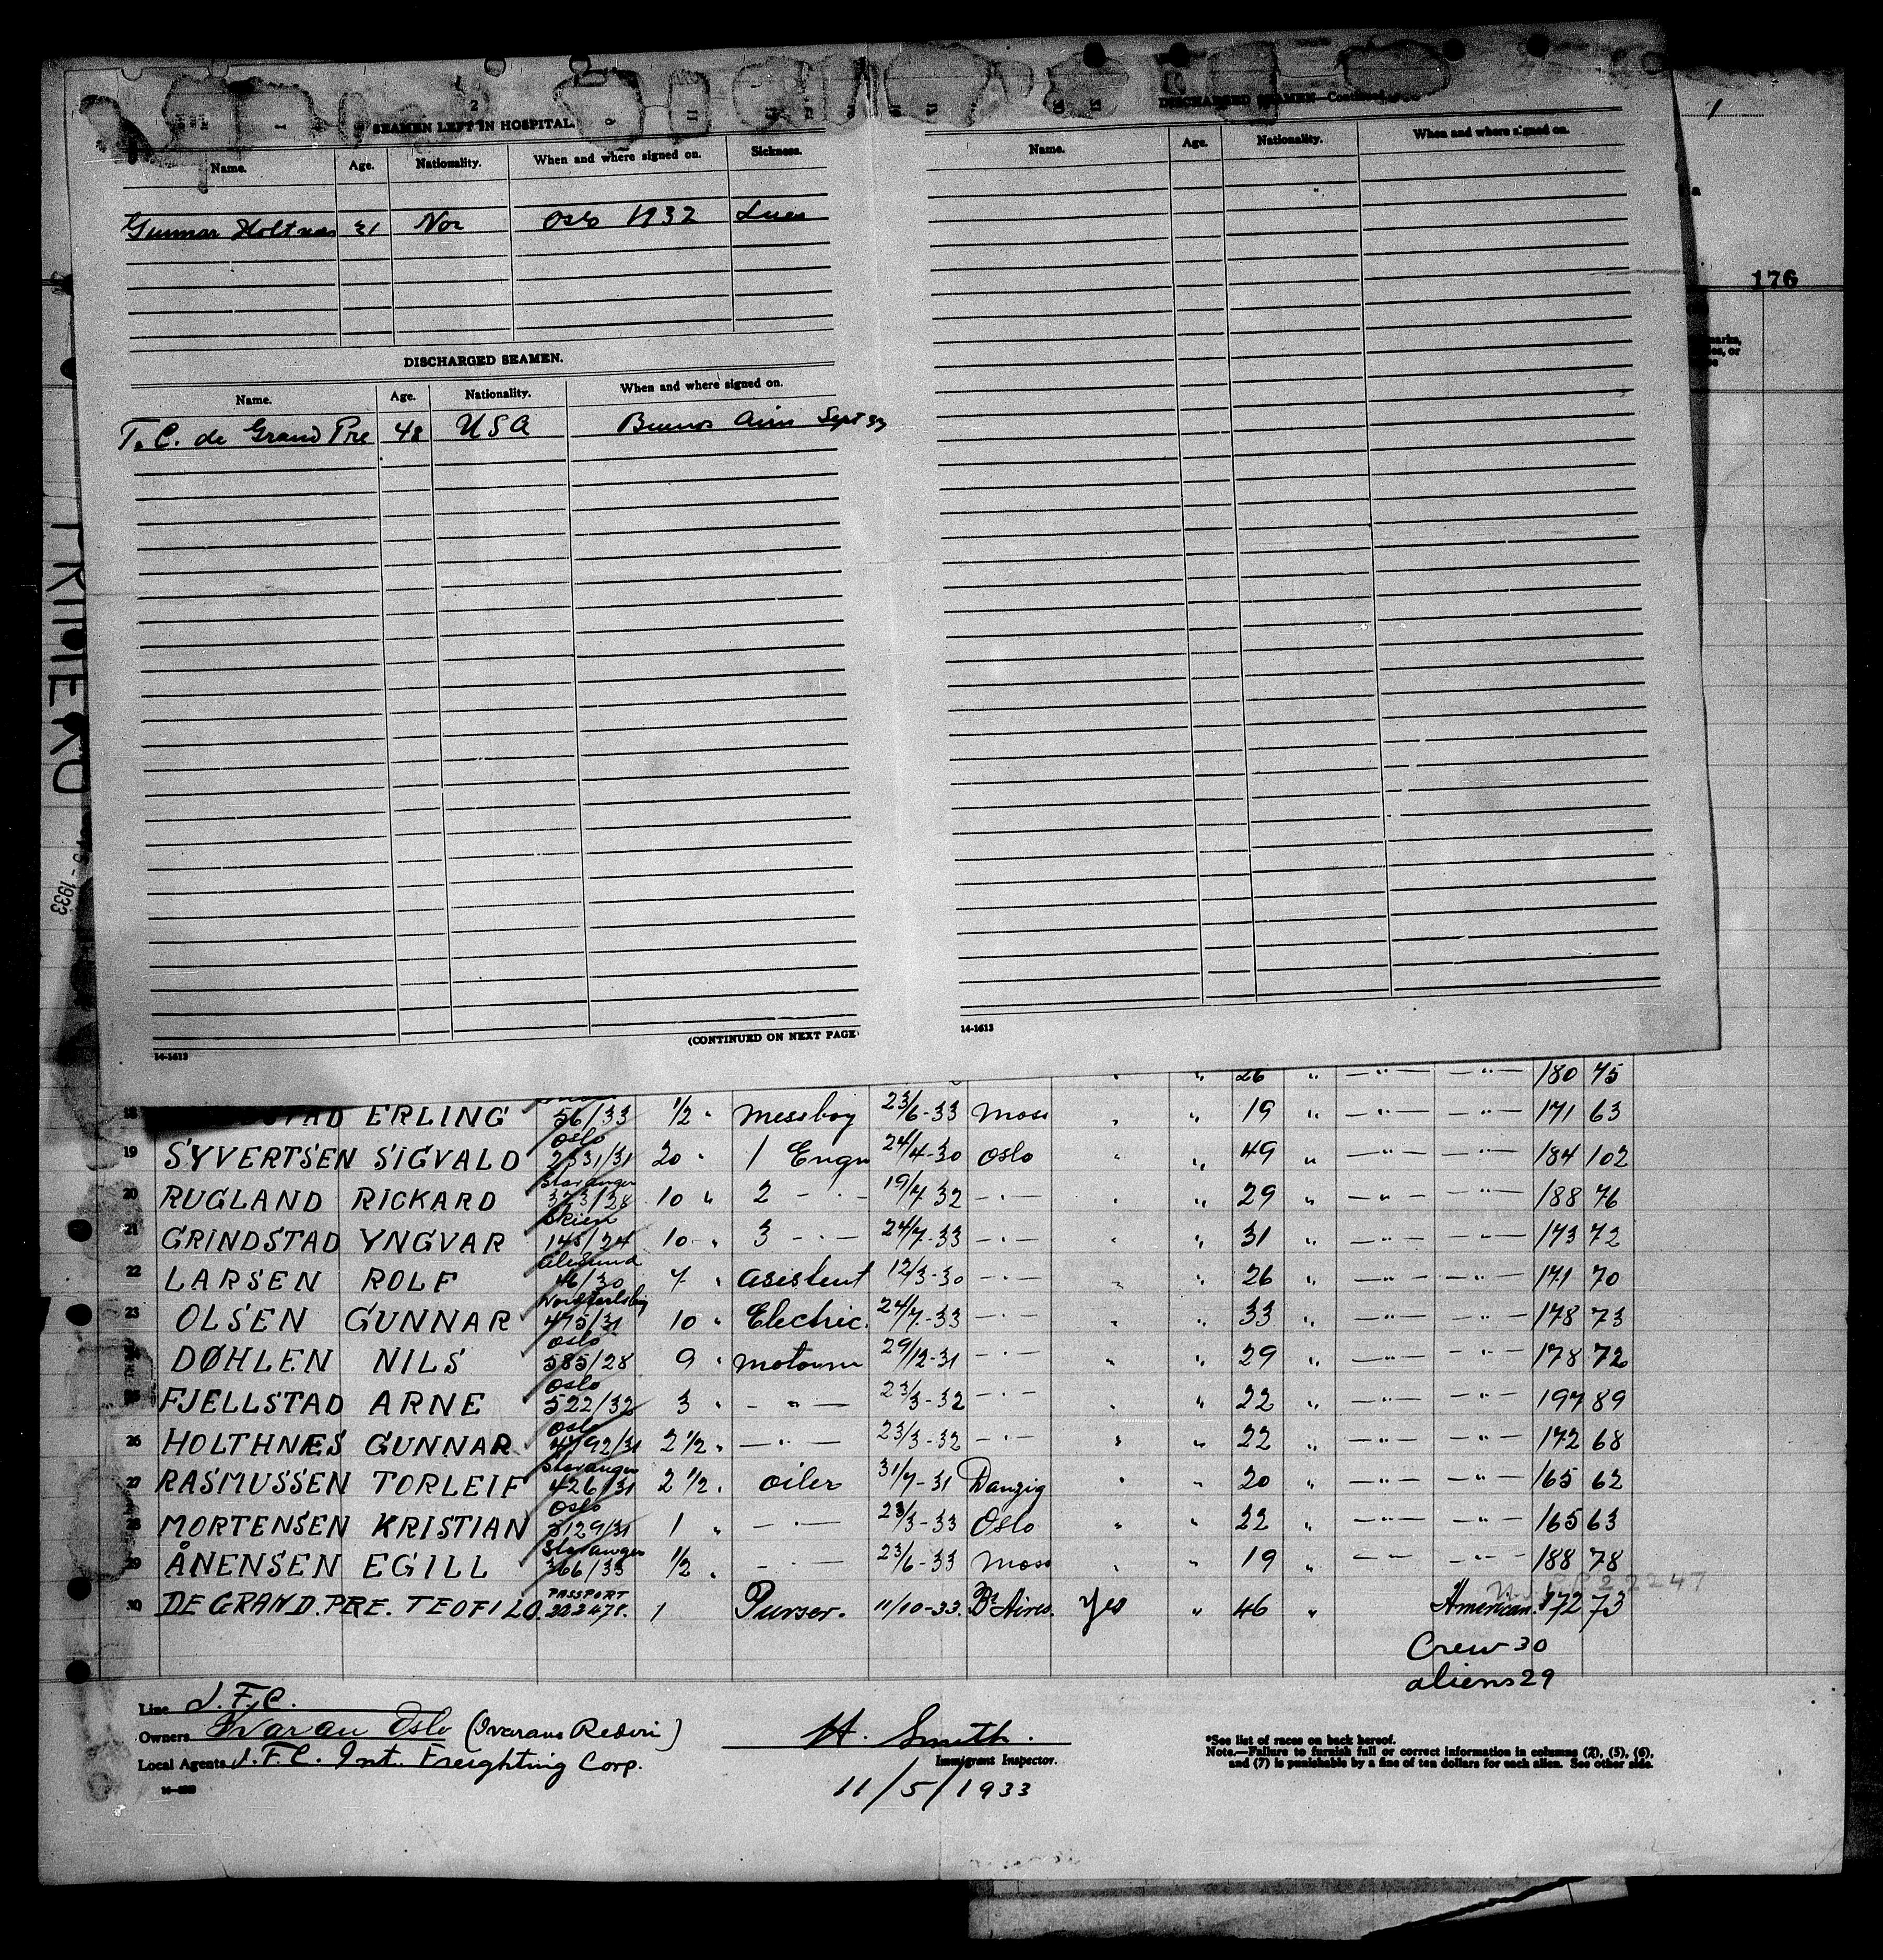 2
SEAMEN LEFT IN HOSPITAL.
Name. Age. Nationality. When and where signed on. Sickness.
Gunnar Holtnæs 21 Nor Oslo 1932 Lues
DISCHARGED SEAMEN.
Name. Age. Nationality. When and where signed on.
T. C. de Grand Pre 48 USA Buenos Aires Sept 33
(CONTINUED ON NEXT PAGE
14-1613
DISCHARGED SEAMEN—Continued
Name. Age. Nationality. When and where signed on.
14-1613
1
176
- 1933
26 " — " — — " — 180 75
18 STAD ERLING 56/33 1/2 " messboy 23/6-33 Moss " " 19 " — " — — " — 171 63
19 SYVERTSEN SIGVALD Oslo 2531/31 20 " 1 Engn 24/4-30 Oslo " " 49 " — " — — " — 184 102
20 RUGLAND RICKARD Stavanger 373/28 10 " 2 - " - 19/7 32 — " — " " 29 " — " — — " — 188 76
21 GRINDSTAD YNGVAR Skien 145/24 10 " 3 - " — 24/7-33 — " — " " 31 " — " — — " — 173 72
22 LARSEN ROLF Alesund 46/30 7 " asistent 12/3-30 — " — " " 26 " — " — — " — 171 70
23 OLSEN GUNNAR 475/31 10 " Electric. 24/7-33 — " — " " 33 " — " — — " — 178 73
DØHLEN NILS Oslo 585/28 9 " motorm 29/12-31 — " — " " 29 " — " — — " — 178 72
FJELLSTAD ARNE Oslo 522/32 3 " - " — 23/3-32 — " — " " 22 " — " — — " — 197 89
26 HOLTHNÆS GUNNAR Oslo 4792/31 2 1/2 " — " — 23/3-32 — " — " " 22 " — " — — " — 172 68
27 RASMUSSEN TORLEIF Stavanger 426/31 2 1/2 " oiler 31/7-31 Danzig " " 20 " — " — — " — 165 62
28 MORTENSEN KRISTIAN Oslo 5129/31 1 " — " — 23/3-33 Oslo " " 22 " — " — — " — 165 63
29 ÅNENSEN EGILL Stavanger 366/33 1/2 " - " — 23/6-33 Moss " " 19 " — — — " — 188 78
30 DE GRAND.PRE. TEOFILO. PASSPORT 222478. 1 Purser. 11/10-33. Bs Aires. Yes " 46 " American. 172 73
Crew 30
aliens 29
Line I.F.C.
Owners Ivaran Oslo (Ivarans Rederi)
Local Agents I.F.C. Int. Freighting Corp.
H. Smith.
Immigrant Inspector.
11/5/1933
*See list of races on back hereof.
Note.—Failure to furnish full or correct information in columns (2), (5), (6),
and (7) is punishable by a fine of ten dollars for each alien. See other side.